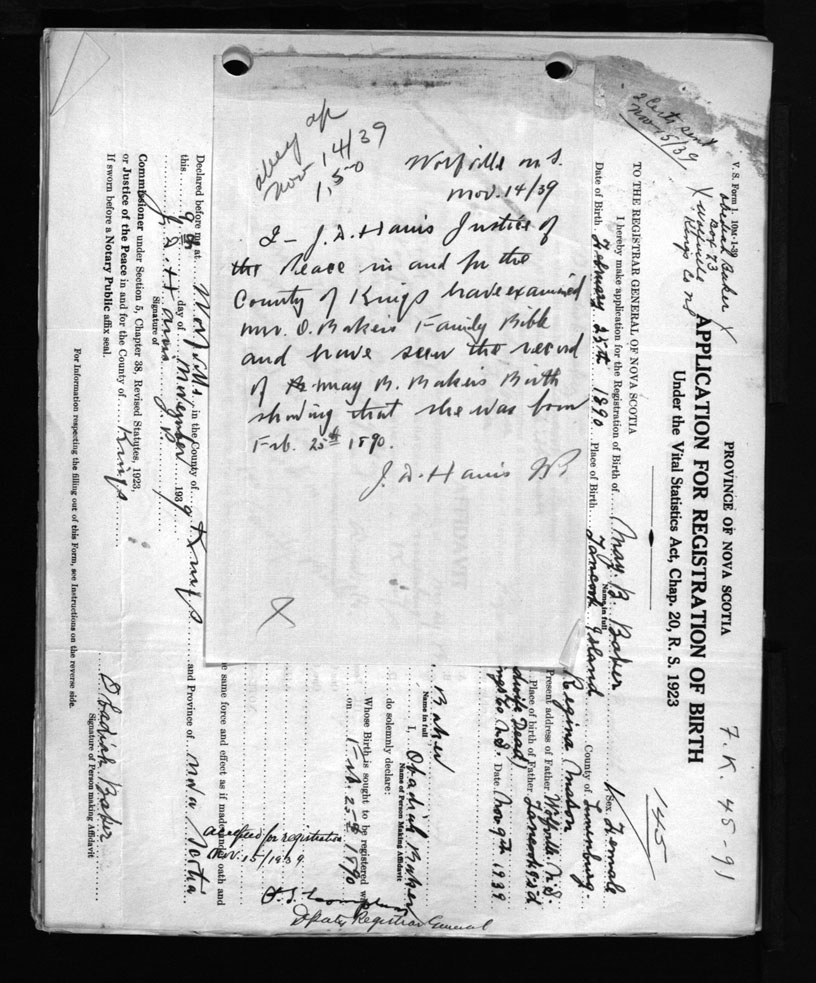 abey ap
Nov 14/39
1.50
Wolfville N.S.
Nov. 14/39
I - J. D. Harris Justice of
the Peace in and for the
County of Kings have examined
Mr. O. Bakers Family Bible
and have seen the record
of May B. Bakers Birth
showing that she was born
Feb. 25th 1890.
J. D. Harris JP
X
2 Certs sent
Nov 15/39
V. S. Form 1. 10M-1-39
Obediah Baker
Box 73
Wolfville
Kings Co NS
7. K. 45-91
145
PROVINCE OF NOVA SCOTIA
APPLICATION FOR REGISTRATION OF BIRTH
Under the Vital Statistics Act, Chap. 20, R. S. 1923
TO THE REGISTRAR GENERAL OF NOVA SCOTIA
I hereby make application for the Registration of Birth of May. B. Baker Sex Female
Name in full
Date of Birth February 25th 1890 Place of Birth Tancook Island County of Lunenburg
Regina Mason
Present address of Father Wolfville N.S.
Place of birth of Father Tancook Isd
Dead)
Co N.S. Date Nov 9th 1939
Baker
Name in full
I, Obadiah Baker
Name of Person Making Affidavit
do solemnly declare:
Whose Birth is sought to be registered was
on Feb. 25th 1890
accepted for registration
Nov. 15/1939
Deputy Registrar General
e same force and effect as if made under oath and
Declared before me at Wolfville in the County of Kings and Province of Nova Scotia
this 9th day of November 1939
J. D. Harris JP
Signature of
Commissioner under Section 5, Chapter 38, Revised Statutes, 1923,
or Justice of the Peace in and for the County of Kings
If sworn before a Notary Public affix seal.
Obadiah Baker
Signature of Person making Affidavit
For Information respecting the filling out of this Form, see Instructions on the reverse side.